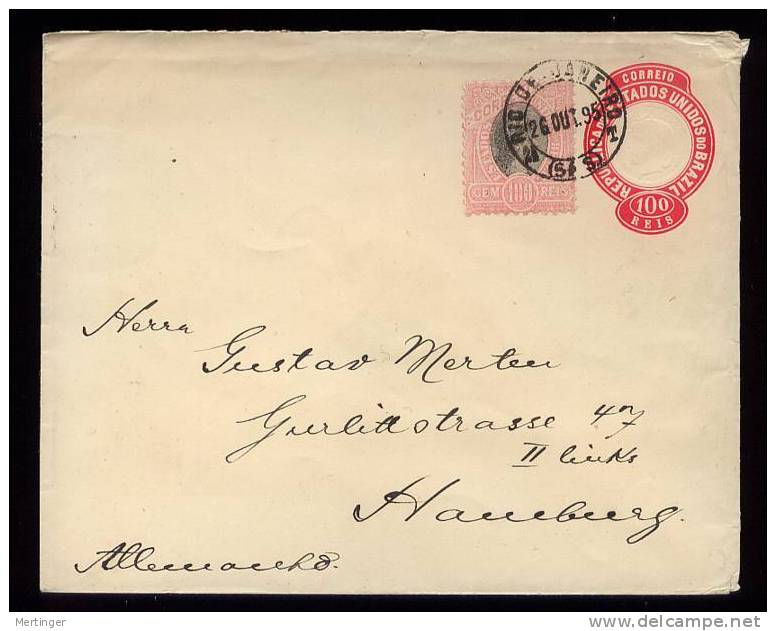 RIO DE JANEIRO
26 OUT. 95
T
CORREIO
ESTADOS UNIDOS DO BRAZIL
100
REIS
CEM 100 REIS
Herrn
Gustav Merten
Gurlittstrasse 47
II links
Hamburg.
Allemanha.
Mertinger
delcampe.net